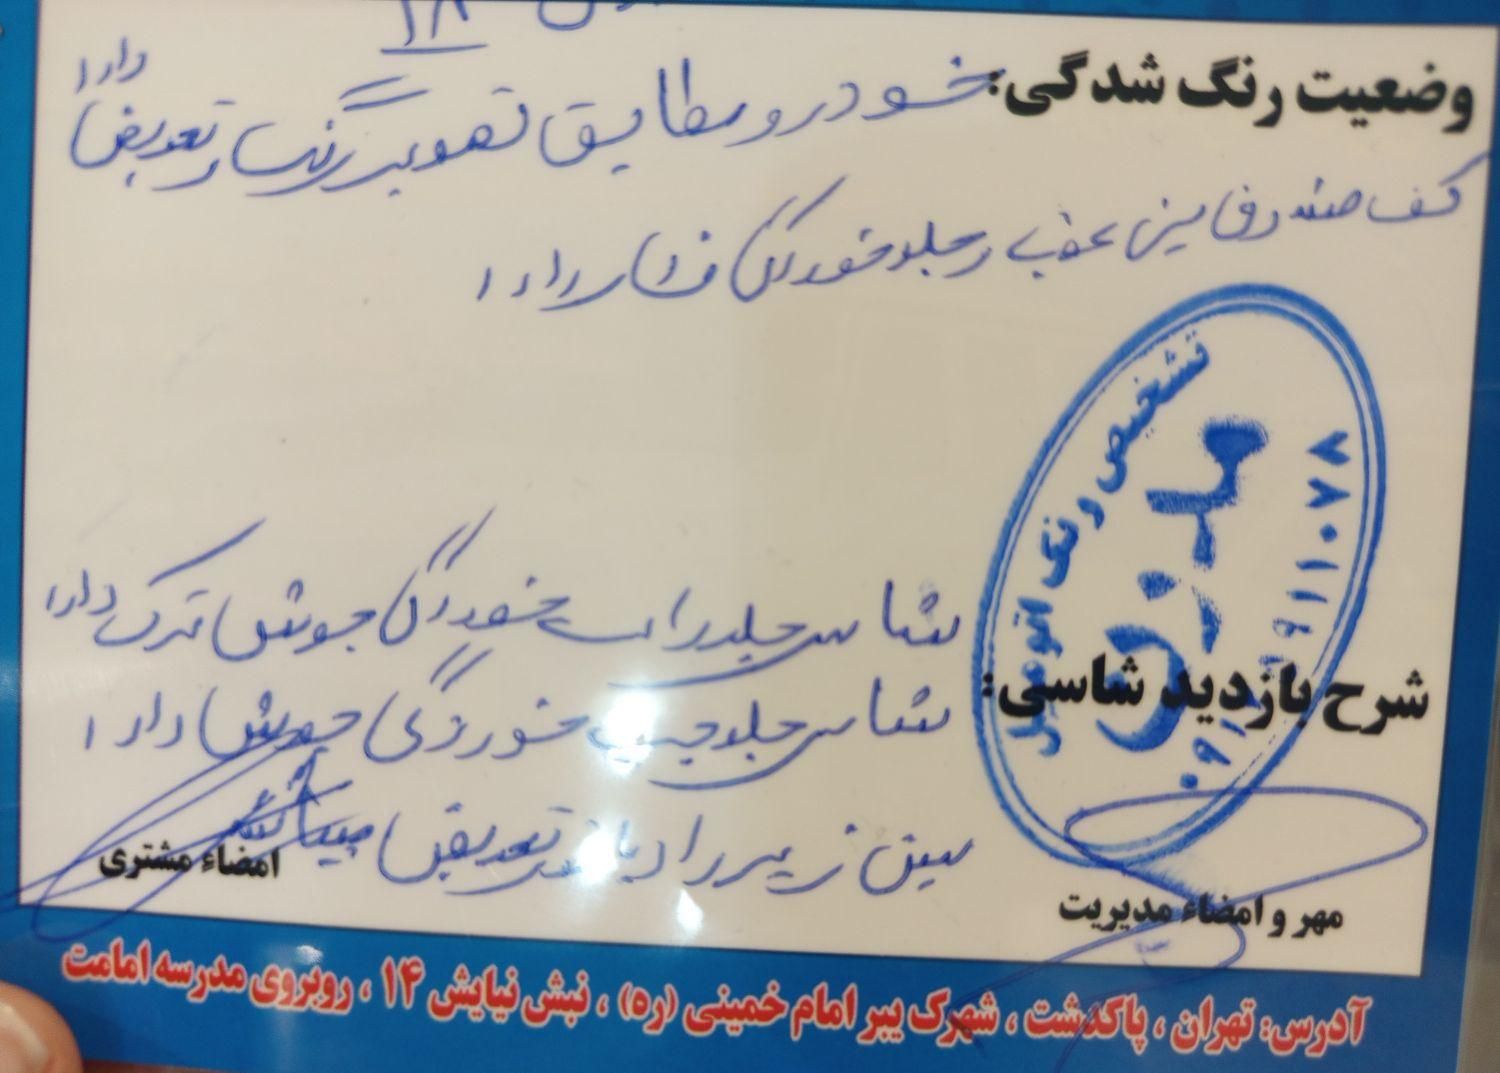 ۱۸
وضعیت رنگ شدگی: خودرو مطابق تصویر رنگ و تعویض دارا
کف صندوق سینی عقب و جلو خوردگی فشار دارا
تشخیص رنگ اتومبیل
شاسی جلو راست خوردگی جوش ترک دارا
شرح بازدید شاسی: شاسی جلو چپ خوردگی جوش دارا
سینی زیر رادیاتور تعویض میباشد
مهر و امضاء مدیریت
امضاء مشتری
آدرس: تهران ، پاکدشت ، شهرک یبر امام خمینی (ره) ، نبش نیایش ۱۴ ، روبروی مدرسه امامت